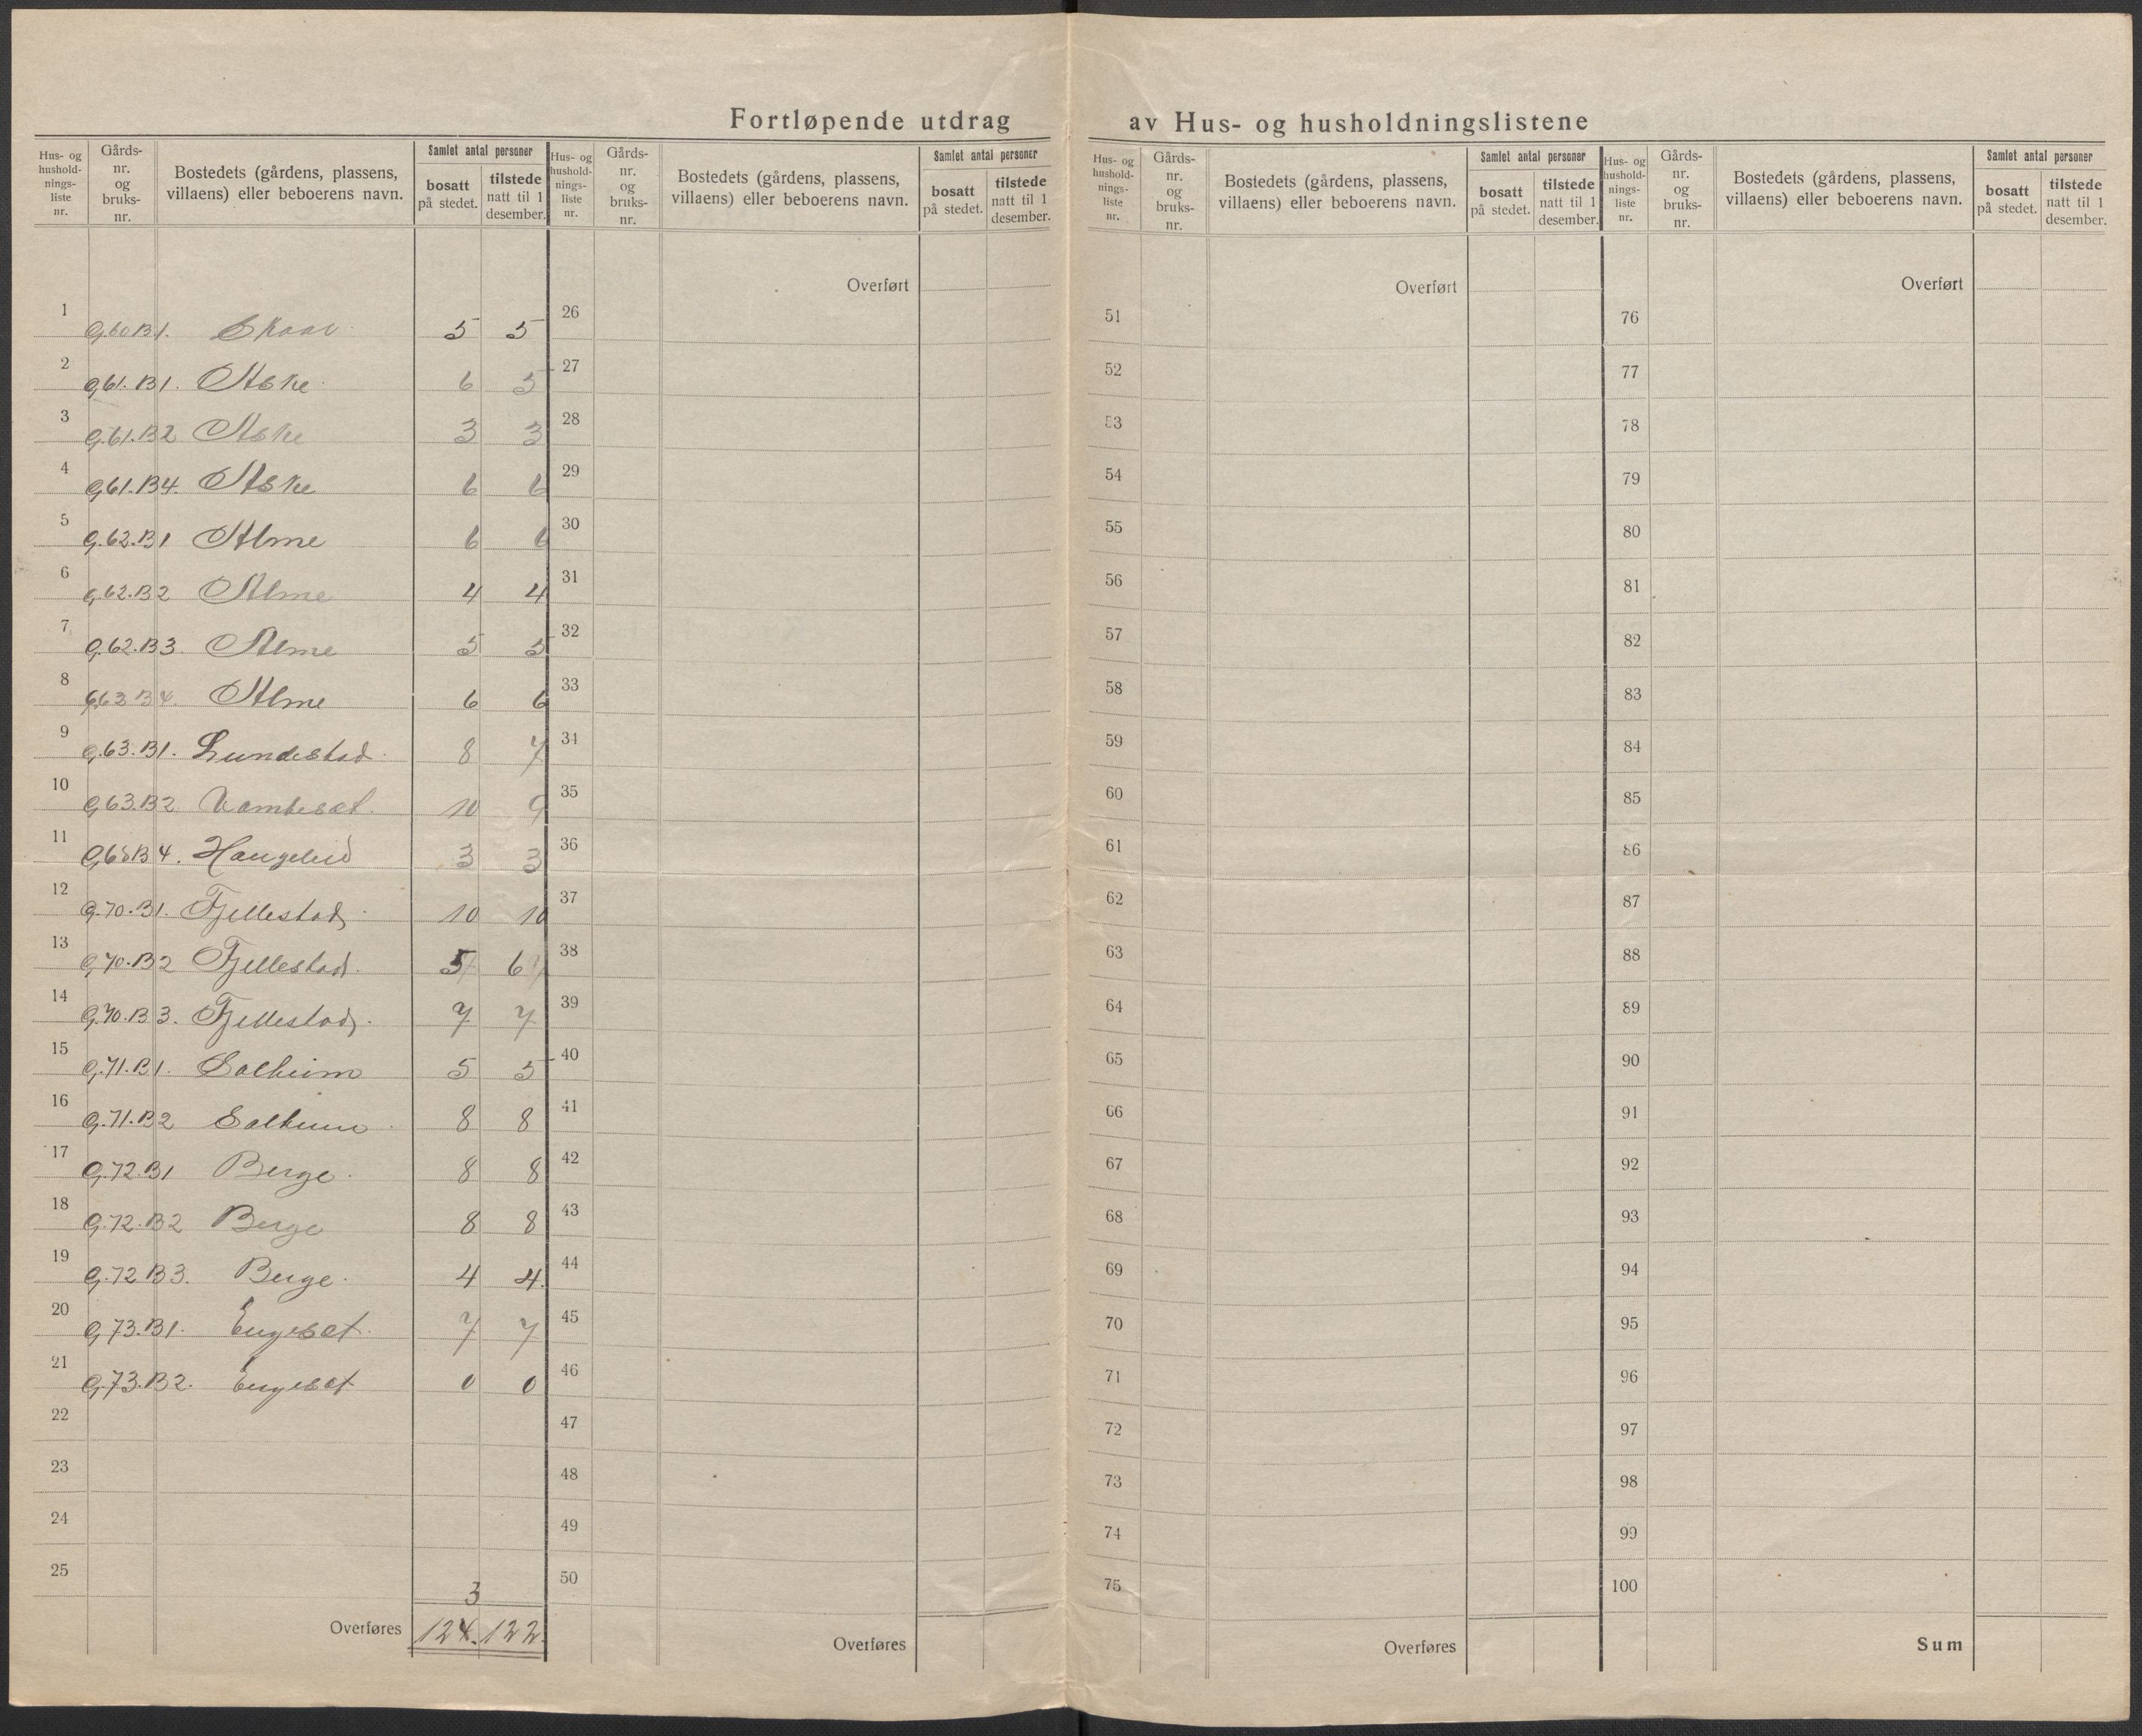 Fortløpende utdrag av Hus- og husholdningslistene
Hus- og hushold-nings-liste nr. | Gårds-nr. og bruks-nr. | Bostedets (gårdens, plassens, villaens) eller beboerens navn. | Samlet antal personer | bosatt på stedet. | tilstede natt til 1 desember.
1 G.60 B1. Skaar 5 5
2 G.61. B1. Aske 6 5
3 G.61. B2 Aske 3 3
4 G.61. B4. Aske 6 6
5 G.62. B1 Alme 6 6
6 G.62. B2 Alme 4 4
7 G.62. B3 Alme 5 5
8 G.63 B4. Alme 6 6
9 G.63. B1. Lundestad 8 7
10 G.63. B2 Vambeset. 10 9
11 B4. Haugelid 3 3
12 G.70. B1. Fjellestad 10 10
13 G.70. B2 Fjellestad. 5 6
14 G.70. B3. Fjellestad. 7 7
15 G.71. B1. Solheim 5 5
16 G.71. B2 Solheim 8 8
17 G.72. B1 Berge. 8 8
18 G.72. B2 Berge 8 8
19 G.72 B3. Berge. 4 4.
20 G.73. B1. Engeset. 7 7
21 G.73. B2. Engeset 0 0
22
23
24
25
3
Overføres 124. 122.
Hus- og hushold-nings-liste nr. | Gårds-nr. og bruks-nr. | Bostedets (gårdens, plassens, villaens) eller beboerens navn. | Samlet antal personer | bosatt på stedet. | tilstede natt til 1 desember.
Overført
26
27
28
29
30
31
32
33
34
35
36
37
38
39
40
41
42
43
44
45
46
47
48
49
50
Overføres
Hus- og hushold-nings-liste nr. | Gårds-nr. og bruks-nr. | Bostedets (gårdens, plassens, villaens) eller beboerens navn. | Samlet antal personer | bosatt på stedet. | tilstede natt til 1 desember.
Overført
51
52
53
54
55
56
57
58
59
60
61
62
63
64
65
66
67
68
69
70
71
72
73
74
75
Overføres
Hus- og hushold-nings-liste nr. | Gårds-nr. og bruks-nr. | Bostedets (gårdens, plassens, villaens) eller beboerens navn. | Samlet antal personer | bosatt på stedet. | tilstede natt til 1 desember.
Overført
76
77
78
79
80
81
82
83
84
85
86
87
88
89
90
91
92
93
94
95
96
97
98
99
100
Sum